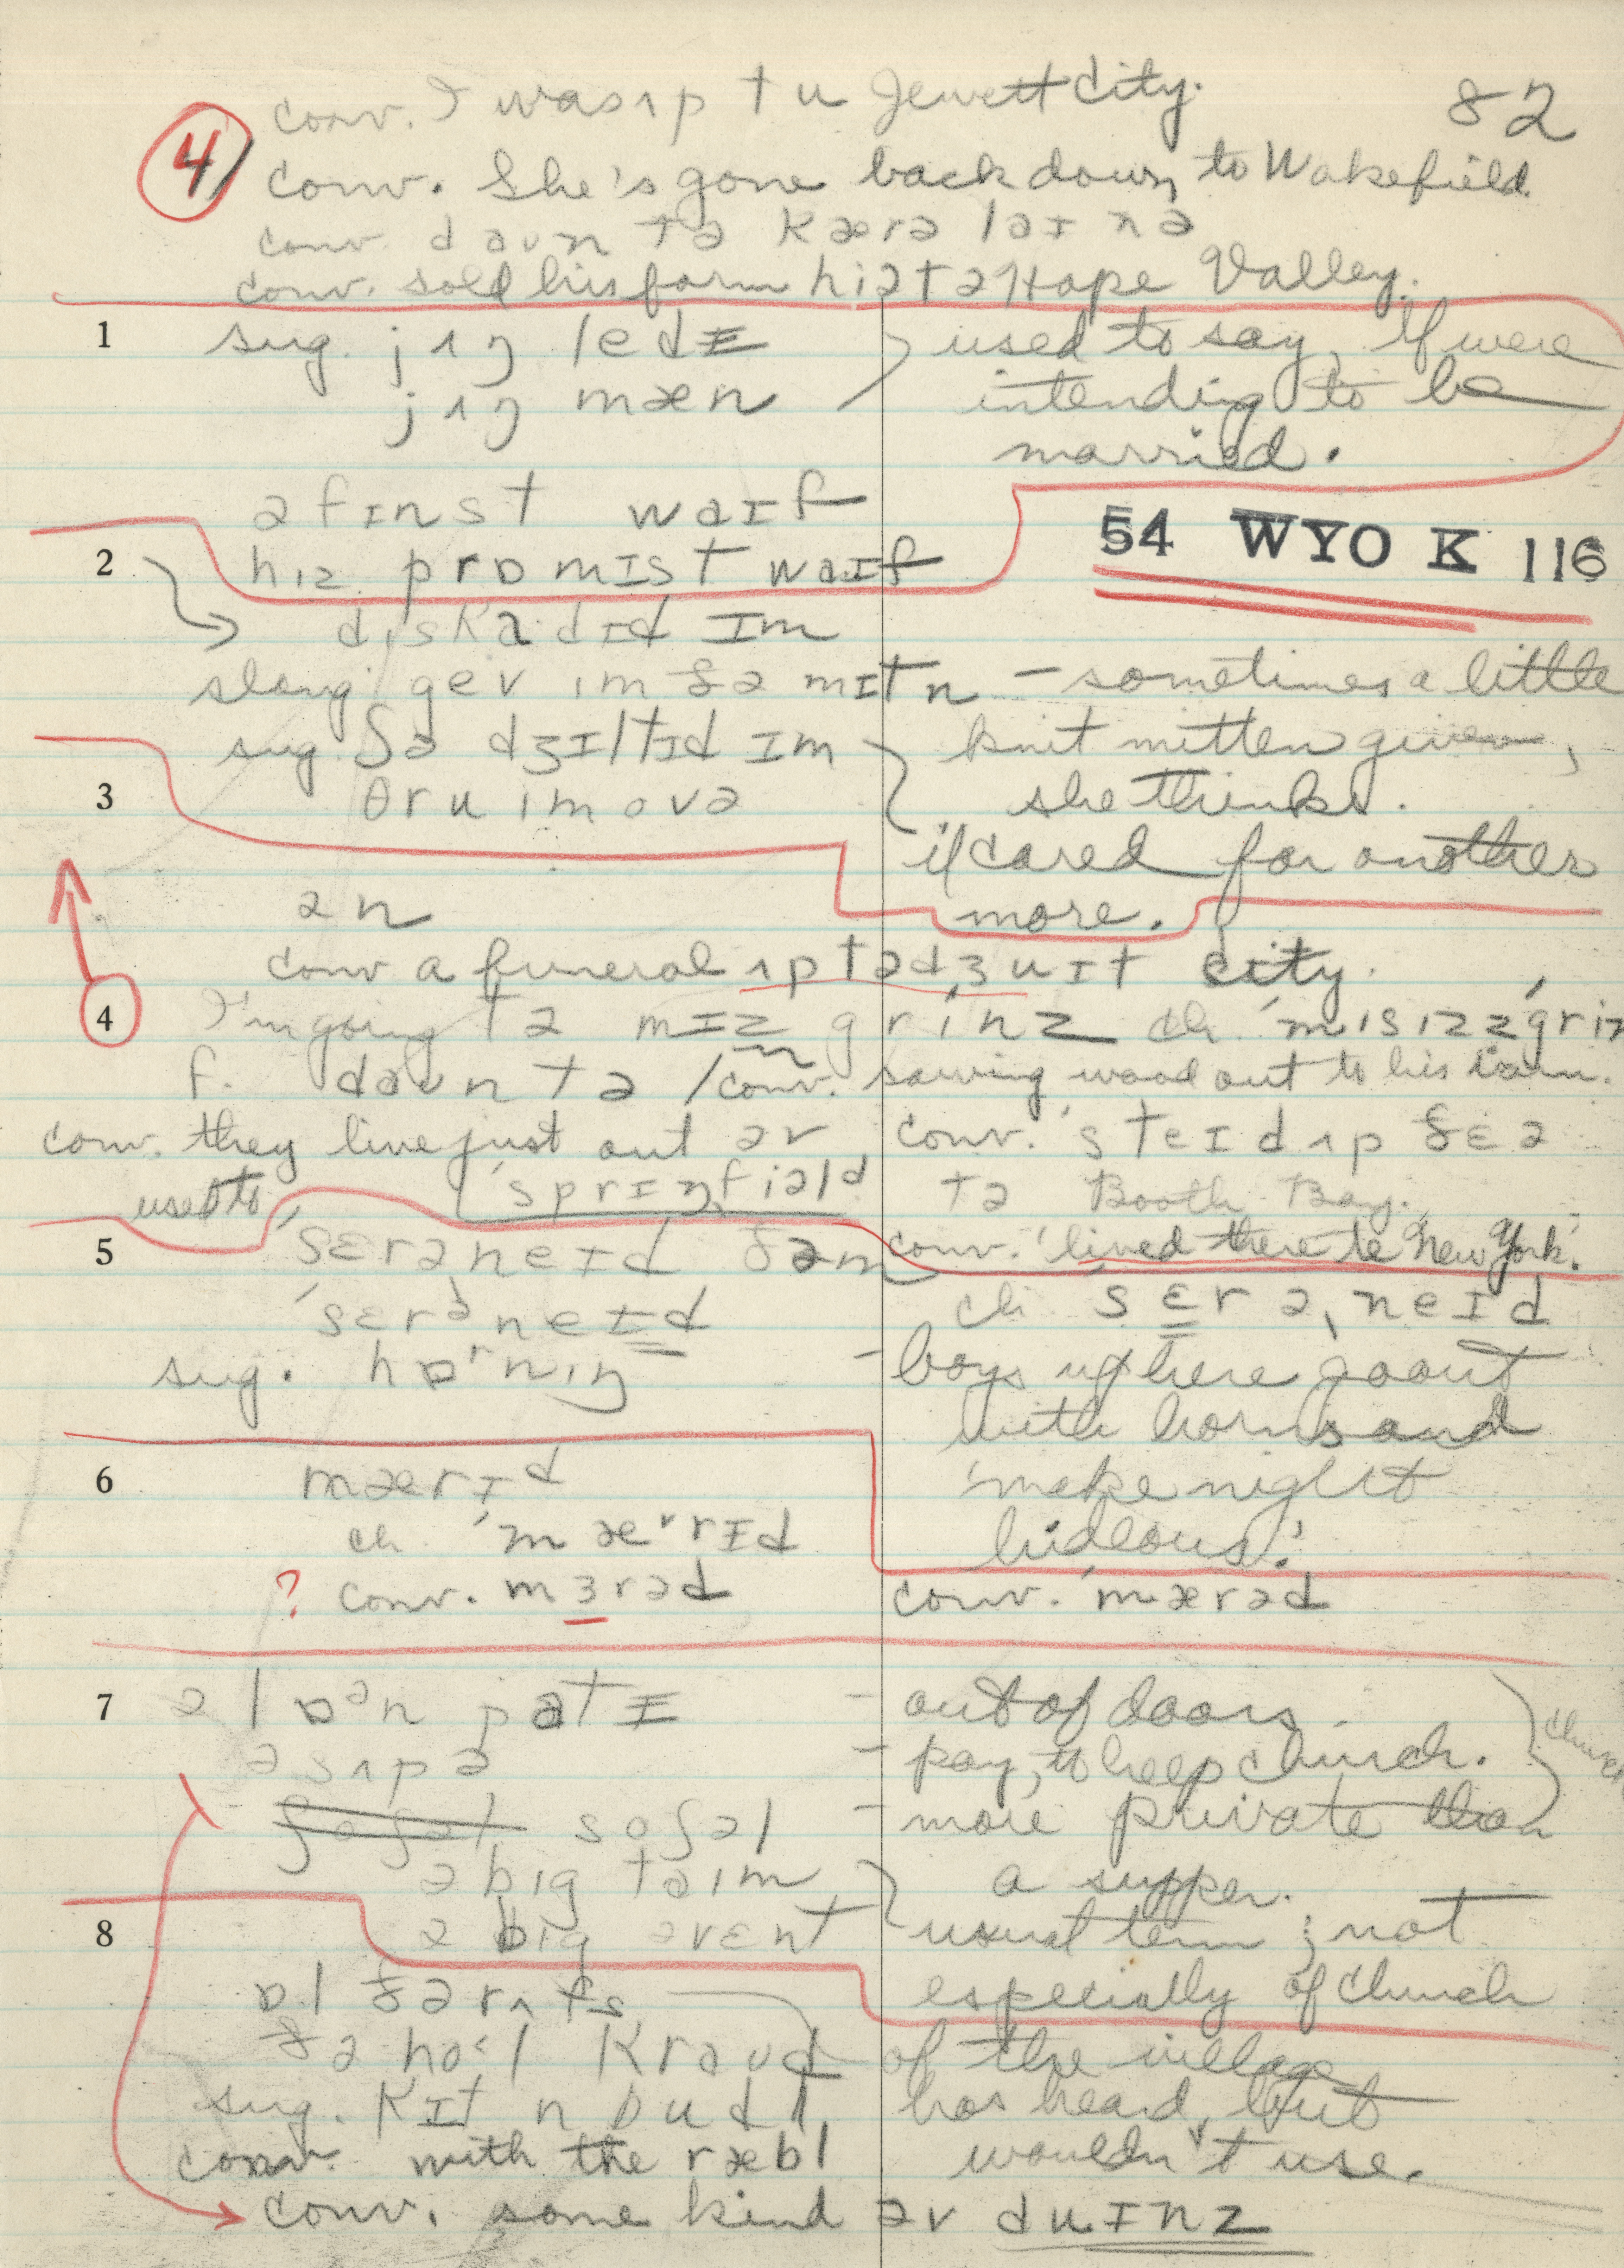 conv. I was ʌp tu Jewett City.
82
4
conv. She's gone back down to Wakefield.
conv. daʊn tə kærəlaɪnə
conv. sold his farm hiətə Hope Valley.
1 sug. jʌŋ ledɪ
used to say, if were
jʌŋ mæn
intending to be
married.
ə fɪnst waɪf
54 WYO K 116
2 hɪz prɒmɪst waɪf
dɪskadɪd ɪm
slang gev ɪm ðə mɪtn – sometimes a little
sug. ʃə dʒɪltɪd ɪm
knit mitten given,
3 θru ɪm ovə
she thinks.
if cared for another
ən
more.
conv a funeral ʌp tə dʒuɪt city.
4 I'm going tə mɪz grinz ch. ˈmɪsɪzz ˈgrin
f. daʊn tə / conv. sawing wood out to his barn.
conv. they live just out əv
conv. steɪd ʌp ðɛə
ˈsprɪŋfiəld
tə Booth Bay.
used to
5 ˈsɛrəneɪd ðəm
conv. 'lived there to New York.'
ˈsɛrəneɪd
ch. sɛrəˌneɪd
sug. hɒʳnɪŋ
– boys up here go out
with horns and
6 mærɪd
'make night
ch. ˈmæᵛrɪd
hideous.'
? conv. mɜrəd
conv. ˈmærəd
7 ə lɒᵊn patɪ
– out of doors.
ə sʌpə
– pay, to help church.
church
ʃoʃəl soʃəl
– more private than
ə bɪg taɪm
a supper.
8 ə bɪg əvɛnt
usual term; not
especially of church
ɒl ðə rʌfs
ðə hol kraʊd
of the village
sug. kɪt n budl
has heard, but
conv. with the ræbl
wouldn't use.
conv. some kind əv duɪnz